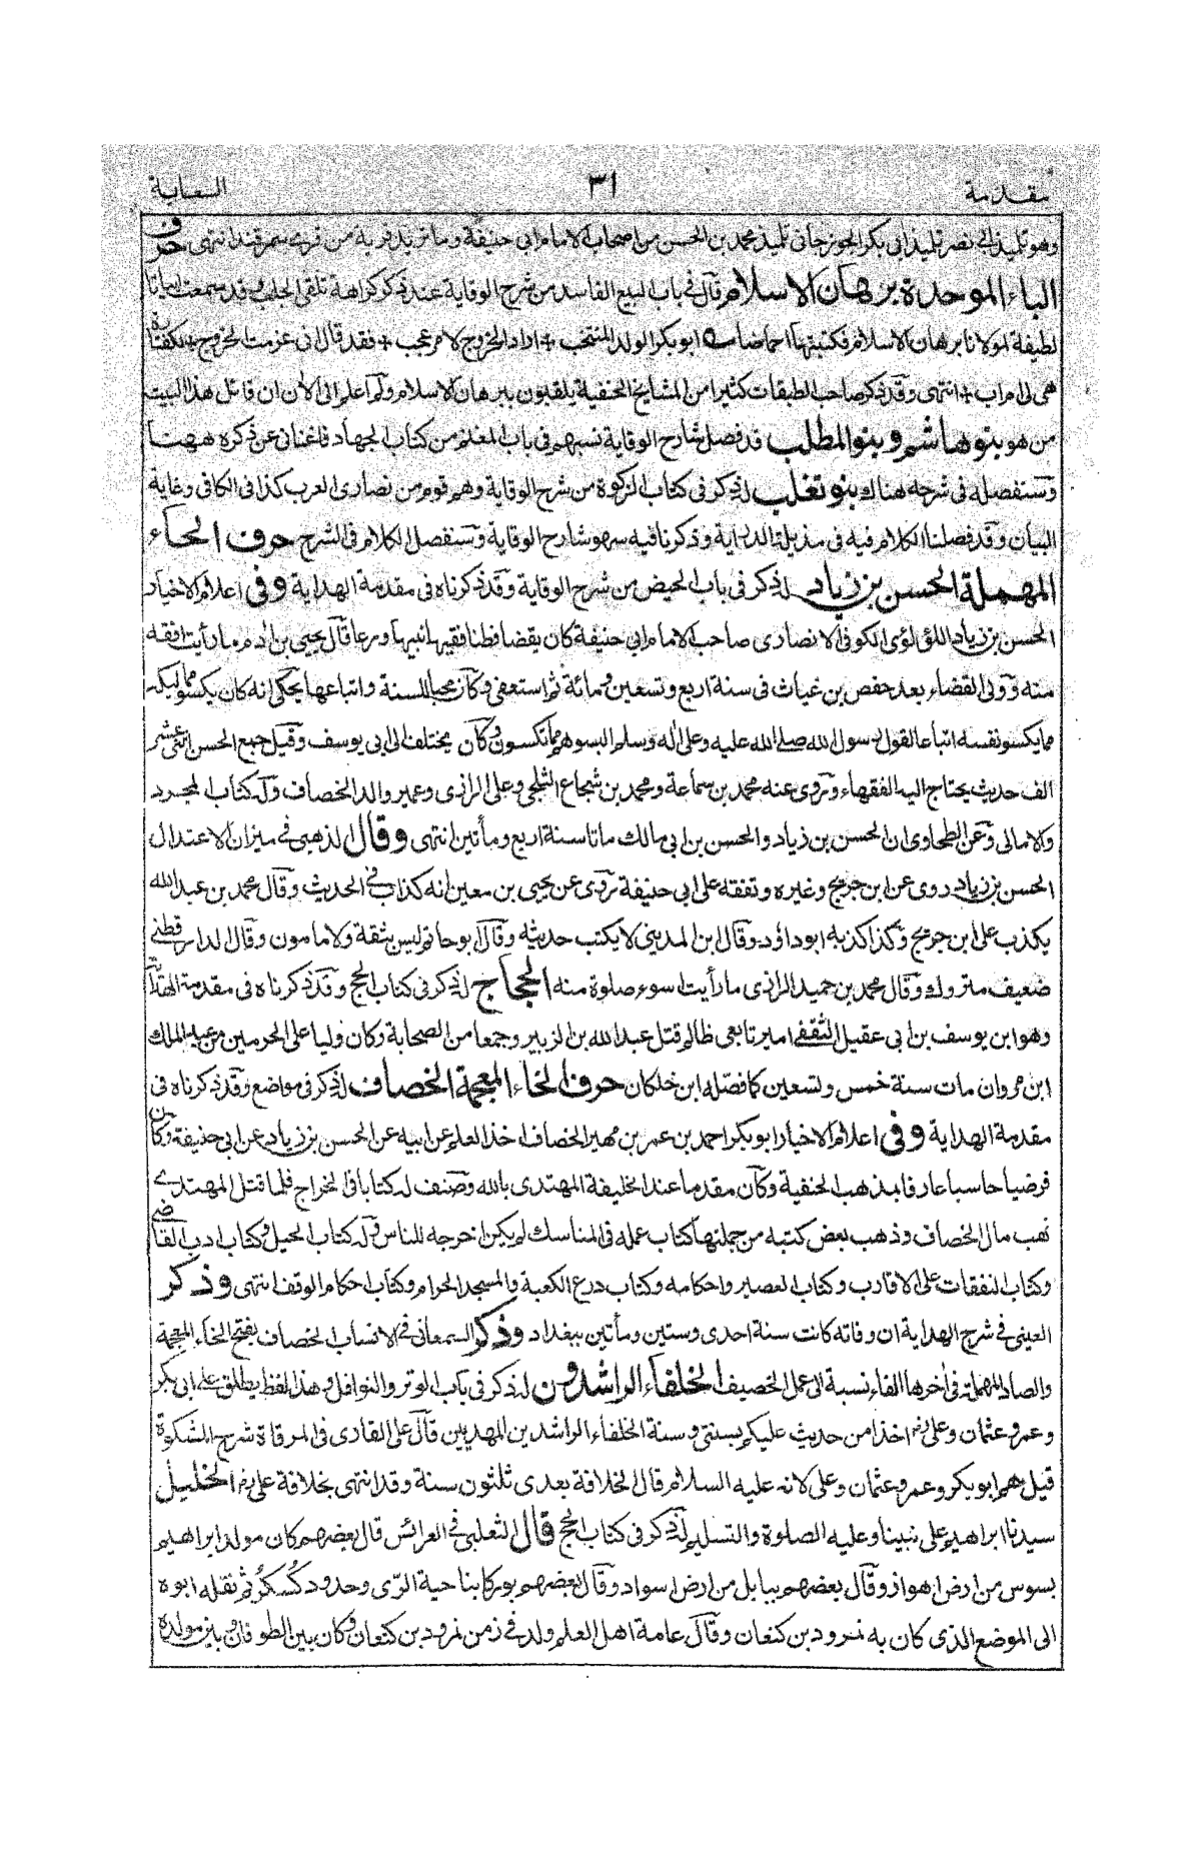 مقدمة ٣١ السعاية
وهو تلميذ ابى نصر تلميذ ابى بكر الجوزجانى تلميذ محمد بن الحسن من اصحاب الامام ابى حنيفة وما تريد قرية من قرى سمرقند انتهى حرف
الباء الموحدة برهان الاسلام قال فى باب البيع الفاسد من شرح الوقاية عند ذكر كراهة تلقى الجلب وقد سمعت ابياتا
لطيفة لمولانا برهان الاسلام فكتبتها احماضا ابو بكر الولد المنتخب + اراد الخروج لامر عجب + فقد قال انى عزمت الخروج + لكفتارة
هى لى ام اب + انتهى وقد ذكر صاحب الطبقات كثيرا من المشايخ الحنفية يلقبون ببرهان الاسلام ولم اعلم الى الآن ان قائل هذا البيت
من هو بنو هاشم وبنو المطلب قد فصل شارح الوقاية نسبهم فى باب المغنم من كتاب الجهاد فاغنانى عن ذكره ههنا
وستفصيله فى شرحه هناك بنو تغلب لذكر فى كتاب الزكوة من شرح الوقاية وهم قوم من نصارى العرب كذا فى الكافى وغاية
البيان وقد فصلنا الكلام فيه فى مذيلة الدراية وذكرنا فيه سهو شارح الوقاية وسنفصل الكلام فى الشرح حرف الحاء
المهملة الحسن بن زياد لذكر فى باب الحيض من شرح الوقاية وقد ذكرناه فى مقدمة الهداية وفى اعلام الاخيار
الحسن بن زياد اللؤلؤى الكوفى الانصارى صاحب الامام ابى حنيفة كان يقضا فطنا فقيها نبيها ورعا قال يحيى بن ادم ما رأيت افقه
منه وولى القضاء بعد حفص بن غياث فى سنة اربع وتسعين ومائة ثم استعفى وكان محبا للسنة واتباعها يحكى انه كان يكسو مماليكه
مما يكسو نفسه اتباعا لقول رسول الله صلى الله عليه وعلى اله وسلم البسوهم مما تكسون وكان يختلف الى ابى يوسف وقيل جمع الحسن اثنى عشر
الف حديث يحتاج اليه الفقهاء وتروى عنه محمد بن سماعة ومحمد بن شجاع الثلجى وعلى الرازى وعمير والد الخصاف وله كتاب المجرد
والامالى وعن الطحاوى ان الحسن بن زياد والحسن بن ابى مالك ماتا سنة اربع ومأتين انتهى وقال الذهبى فى ميزان الاعتدال
الحسن بن زياد روى عن ابن جريج وغيره وتفقه على ابى حنيفة تروى عن يحيى بن معين انه كذاب فى الحديث وقال محمد بن عبد الله
يكذب على ابن جريج وكذا كذبه ابو داود وقال ابن المدينى لا يكتب حديثه وقال ابو حاتم ليس بثقة ولا مامون وقال الدارقطنى
ضعيف متروك وقال محمد بن حميد الرازى ما رأيت اسوء صلوة منه الحجاج لذكر فى كتاب الحج وقد ذكرناه فى مقدمة الهداية
وهو ابن يوسف بن ابى عقيل الثقفى امير تابعى ظالم قتل عبد الله بن الزبير وجمعا من الصحابة وكان وليا على الحرمين من عبد الملك
ابن مروان مات سنة خمس وتسعين كما فصله ابن خلكان حرف الخاء المعجمة الخصاف لذكر فى مواضع وقد ذكرناه فى
مقدمة الهداية وفى اعلام الاخيار ابو بكر احمد بن عمر بن مهير الخصاف اخذ العلم عن ابيه عن الحسن بن زياد عن ابى حنيفة وكان
فرضيا حاسبا عارفا بمذهب الحنفية وكان مقدما عند الخليفة المهتدى بالله وصنف له كتابا فى الخراج فلما قتل المهتدى
نهب مال الخصاف وذهب بعض كتبه من جملتها كتاب عمله فى المناسك لم يكن اخرجه للناس وله كتاب الحيل وكتاب ادب القاضى
وكتاب النفقات على الاقارب وكتاب العصير واحكامه وكتاب درع الكعبة والمسجد الحرام وكتاب احكام الوقف انتهى وذكر
العينى فى شرح الهداية ان وفاته كانت سنة احدى وستين ومأتين ببغداد وذكر السمعانى فى الانساب الخصاف بفتح الخاء المعجمة
والصاد المهملة فى اخرها الفاء نسبة الى عمل الخصيف الخلفاء الراشدون لذكر فى باب الوتر والنوافل وهذا لفظ يطلق على ابى بكر
وعمر وعثمان وعلى رض اخذا من حديث عليكم بسنتى وسنة الخلفاء الراشدين المهديين قال على القارى فى المرقاة شرح المشكوة
قيل هم ابو بكر وعمر وعثمان وعلى لانه عليه السلام قال الخلافة بعدى ثلثون سنة وقد انتهى بخلافة على رض الخليل
سيدنا ابراهيم على نبينا وعليه الصلوة والتسليم لذكر فى كتاب الحج قال الثعلبى فى العرائس قال بعضهم كان مولد ابراهيم
بسوس من ارض اهواز وقال بعضهم ببابل من ارض اسواد وقال بعضهم بوركا بناحية الرى وحدود كسكر ثم نقله ابوه
الى الموضع الذى كان به نمرود بن كنعان وقال عامة اهل العلم ولد فى زمن نمرود بن كنعان وكان بين الطوفان وبين مولده